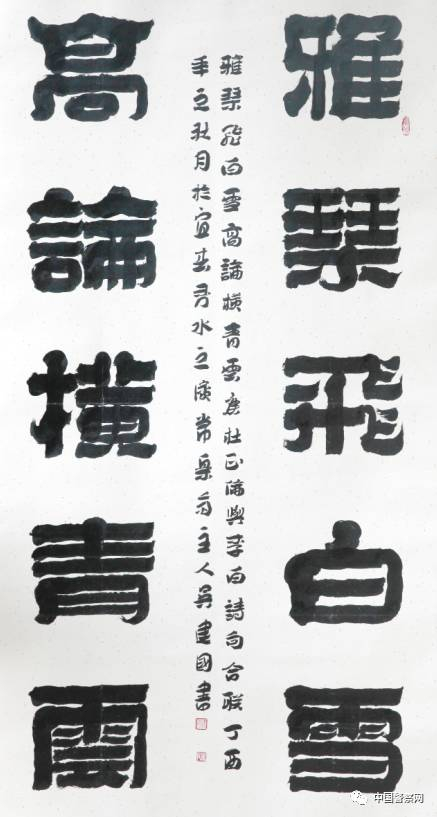 雅琴飛白雪
高論橫青雲
雅琴飛白雪高論橫青雲唐杜正倫與李白詩句合联丁酉
年之秋月於宜春秀水之濱常主人吳建國書
中国警察网